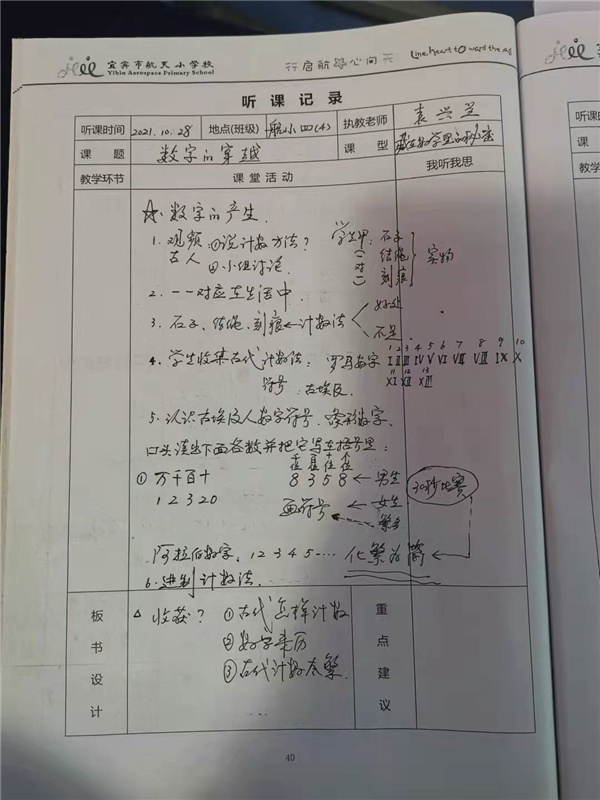 宜宾市航天小学校
Yibin Aerospace Primary School
行启航路心向天
Line, heart to ward the
听课记录
听课时间 2021.10.28 地点(班级) 航小四(4) 执教老师
课题 数字的穿越 课型 藏在数学里的秘密
教学环节 课堂活动 我听我思
☆ 数字的产生
1. 观频 ①说计数方法? 学生甲: 石子
古人 ②小组讨论 (一 结绳 实物
对
一) 刻痕
2. 一一对应在生活中
3. 石子、结绳、刻痕←计数法 好处
不足
4. 学生收集古代计数法: 罗马数字
1 2 3 4 5 6 7 8 9 10
I II III IV V VI VII VIII IX X
11 12 13
XI XII XIII
符号 古埃及
5. 认识古埃及人数字符号、象形数字
口头读出下面各数并把它写在括号里:
千 百 十 个
① 万千百十 8 3 5 8 ← 男生 30秒比赛
1 2 3 2 0 画符号 ← 女生
繁多
阿拉伯数字, 1 2 3 4 5 …… 化繁为简
6. 进制计数法
板书设计
△ 收获? ①古代怎样计数
②数字来历
③古代计数太繁
重点建议
40